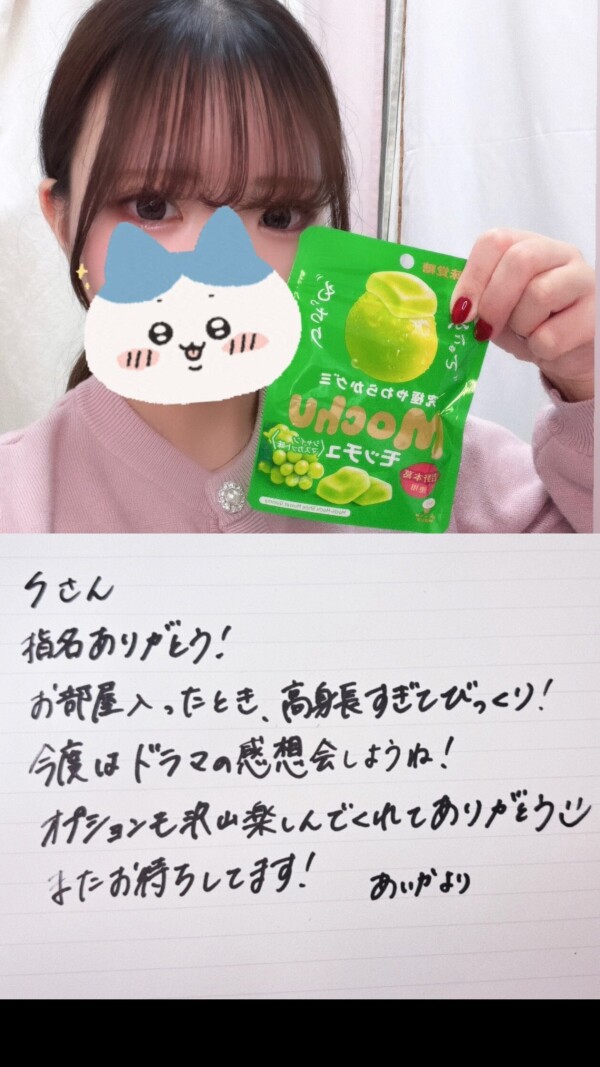 味覚糖
めっちゃ
究極やわらかグミ
Mochu
モッチュ
シャイン
マスカット味
今さん
指名ありがとう!
お部屋入ったとき、高身長すぎてびっくり!
今度はドラマの感想会しようね!
オプションも沢山楽しんでくれてありがとう
またお待ちしてます!
あいかより